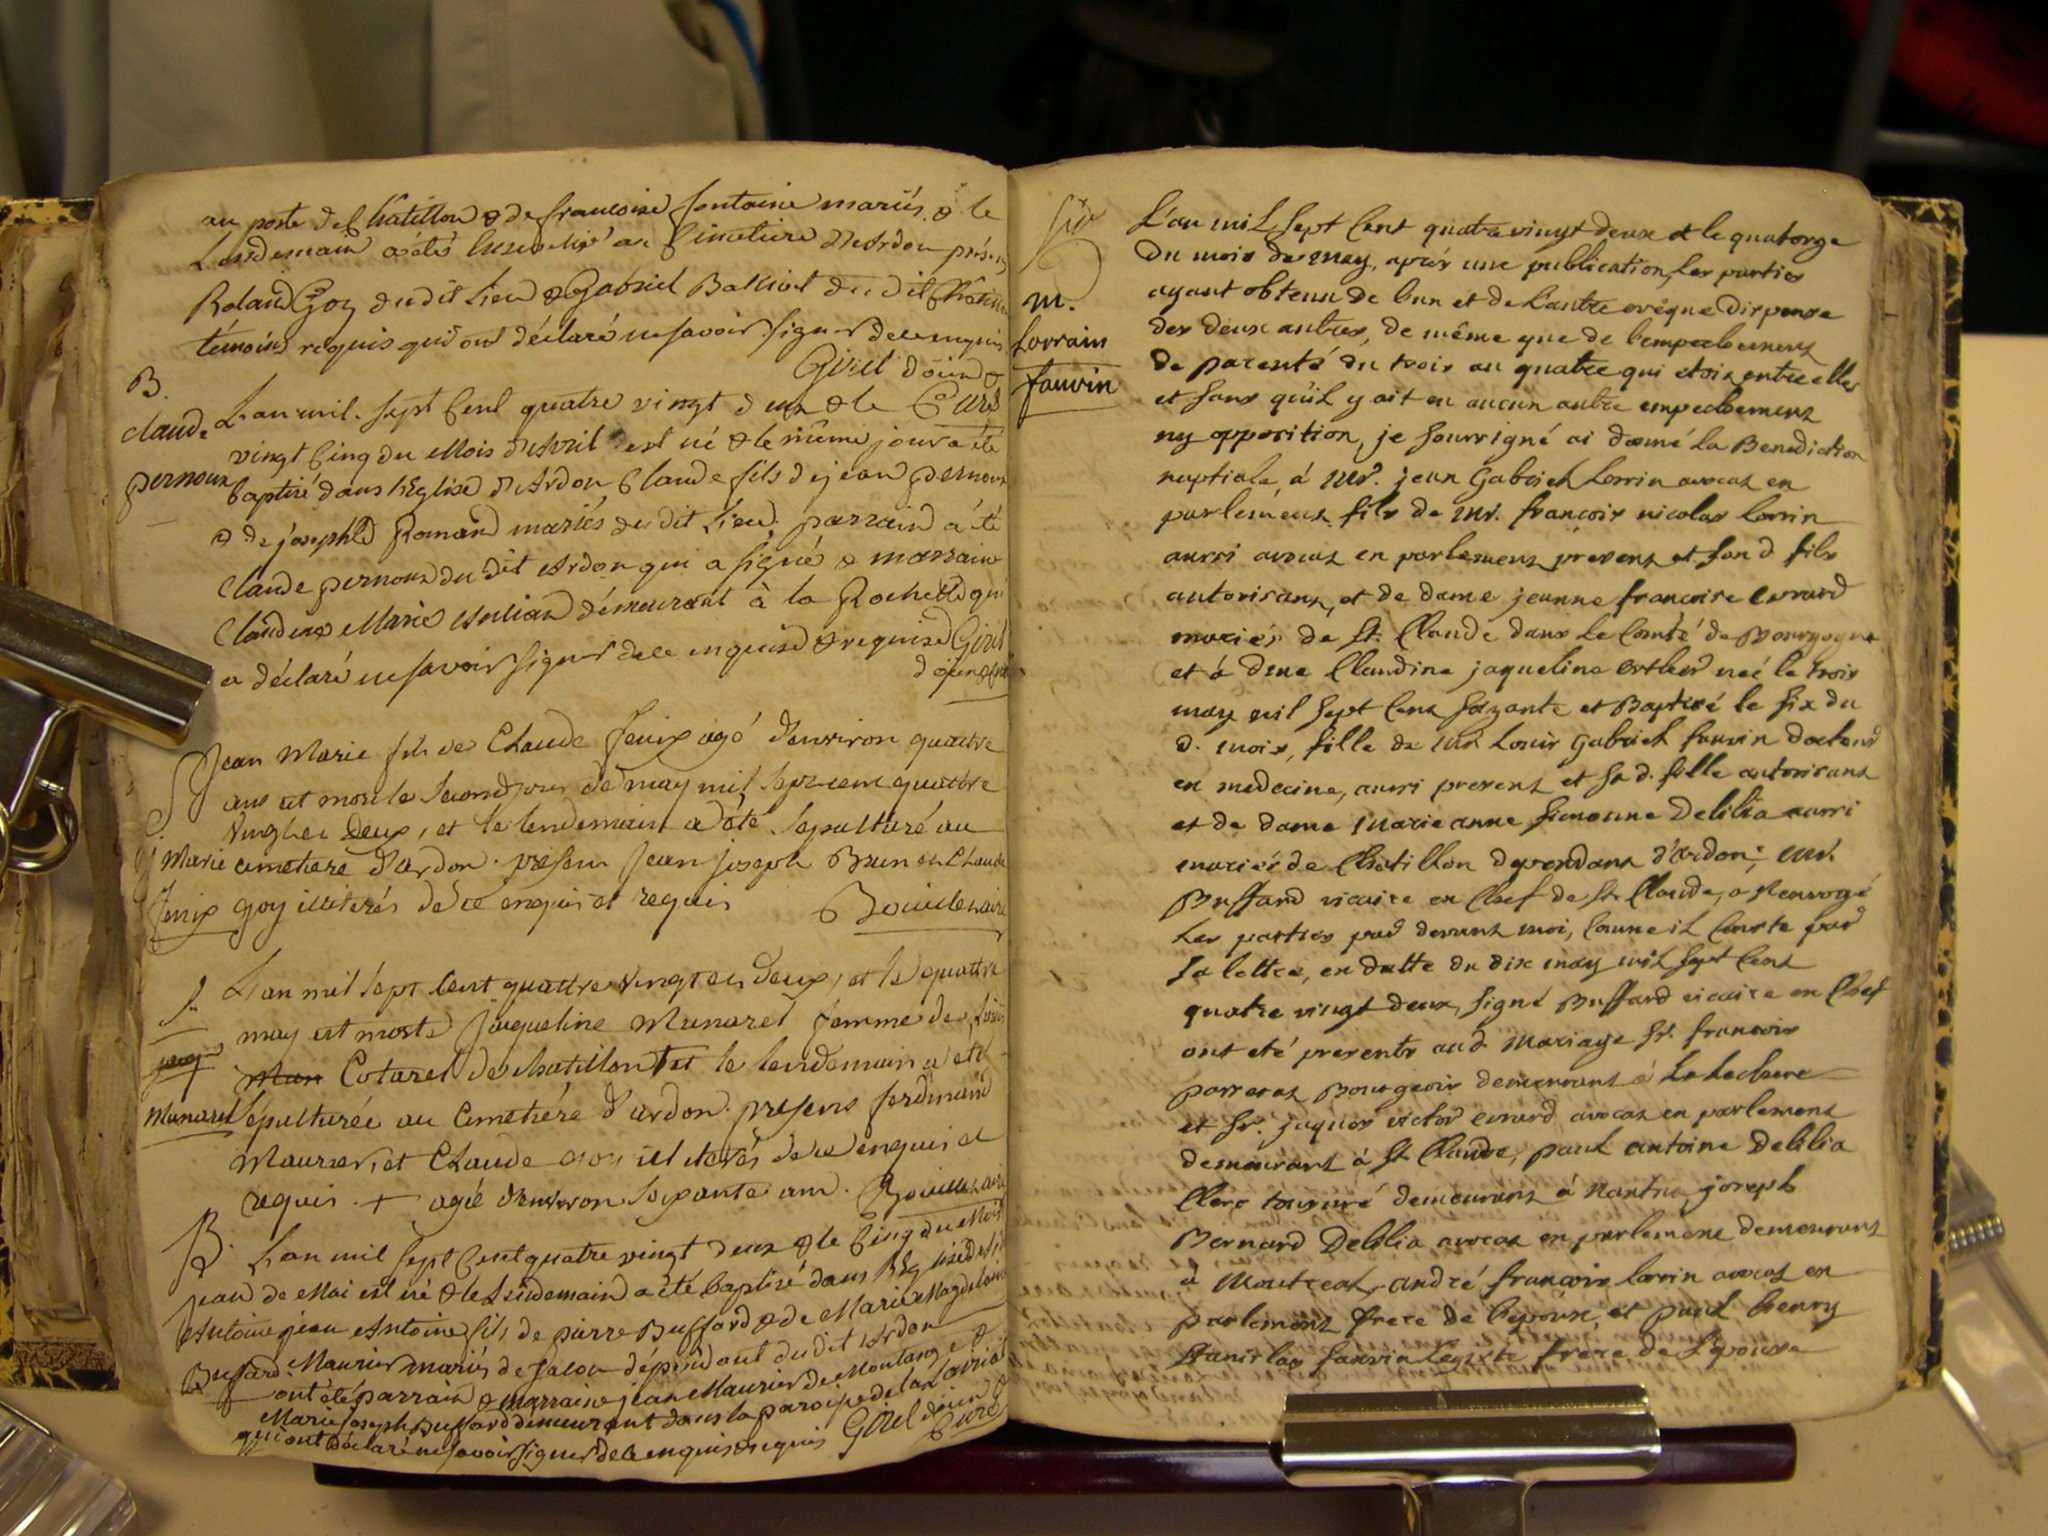 au poste de Chatillon & de francoise fontaine mariés, & le
Lendemain a été inhumé au Cimetiere d'Ardon présens
Roland Goy du dit Lieu & Gabriel Balliod du dit Chatillon
témoins requis qui ont déclaré ne savoir signer de ce enquis
Girel doüin &
Curé
B.
claude
pernoux
L'an mil sept Cent quatre vingt deux & le
vingt Cinq du Mois d'Avril est né & le même jour a été
baptisé dans l'Eglise d'Ardon Claude fils de jean pernoux
& de josephte Romand mariés du dit Lieu, parrain a été
Claude pernoux du dit Ardon qui a signé & marraine
Claudine Marie demeurant à la Roche qui
a déclaré ne savoir signer de ce enquise & requise Girel
S
j. Marie
fenix
Jean Marie fils de Claude fenix agé d'environ quattre
ans est mort le second jour de may mil sept cent quattre
vingt et deux, et le lendemain a été sepulturé au
cimetiere d'ardon. presens Jean joseph Brun et Claude
goy illiterés de ce enquis et requis Bouillenaire
S.
jacq
Munaret
L'an mil sept cent quattre vingt et deux, et le quattre
may est morte jaqueline Munaret femme de
Cotaret de chatillon + et le lendemain a eté
sepulturée au cimetière d'ardon. presens ferdinand
Maurier, et Claude goy illiterés de ce enquis et
requis + agée d'environ soixante ans. Bouillenaire
B.
jean
Antoine
Buffard
L'an mil sept Cent quatre vingt deux & le Cinq du Mois
de Mai est né & le Lendemain a été baptisé dans l'Eglise
jean Antoine fils de pierre Buffard & de Marie Magdelaine
Maurier mariés de dépendant du dit Ardon
ont été parrain & marraine jean Maurier de Montange &
Marie joseph Buffard demeurant dans la paroisse de
qui ont déclaré ne savoir signer de ce enquis & requis Girel doüin
Curé
m.
Lorrain
fauvin
L'an mil sept Cent quatre vingt deux et le quatorze
du mois de may, après une publication, les parties
ayant obtenu de l'un et de l'autre evêque dispense
des deux autres, de même que de l'empechement
de parenté du trois au quatre qui etois entre elles
et sans qu'il y ait eu aucun autre empechement
ny opposition, je soussigné ai donné la Benediction
nuptiale, à Mr. jean Gabriel Lorrin avocat en
parlement fils de Mr. francois nicolas lorrin
aussi avocat en parlement present et son d fils
autorisant, et de dame jeanne francoise evrard
mariés de St. Claude dans le Comté de Bourgogne
et à dme Claudine jaqueline neé le trois
may mil sept Cent soixante et Baptisé le six du
d. mois, fille de Mr Louis Gabriel fauvin docteur
en medecine, aussi present et sa d. fille autorisant
et de dame Marie anne simonne Delilia aussi
mariés de Chatillon dependant d'ardon; Mr.
Buffard vicaire en Chef de St. Claude, a Renvoyé
les parties par devant moi, Comme il Conste par
sa lettre, en datte du dix may mil sept Cent
quatre vingt deux, signé Buffard vicaire en Chef
ont eté presents aud. Mariage Sr. francois
passerat Bourgeois demeurant à
et Sr. jaques victor evrard avocat en parlement
demeurant à St Claude, paul antoine Delilia
Clerc tonsuré demeurant à Nantua, joseph
Bernard Delilia avocat en parlement demeurant
à Montreal, andré francois lorrin avocat en
parlement frere de l'epoux, et paul henry
stanislas fauvin Legiste frere de L'epouse